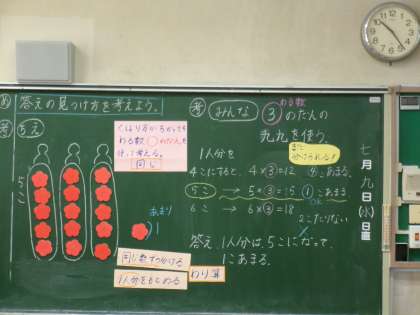 め 答えの見つけ方を考えよう。
考 ちえ
5こ
あまり
1
くばり方がちがっても
わる数○のだんを
使って考える。
同じ
同じ数ずつ分ける
1人分をもとめる
わり算
考 みんな わる数
③のだんの
九九を使う。
まだ
分けられる!
1人分を
4こにすると、4×③=12 ④こあまる
5こ → 5×③=15 ①こあまる
OK
6こ → 6×③=18
2こたりない
答え 1人分は、5こになって、
1こあまる。
七月九日(水)
日直